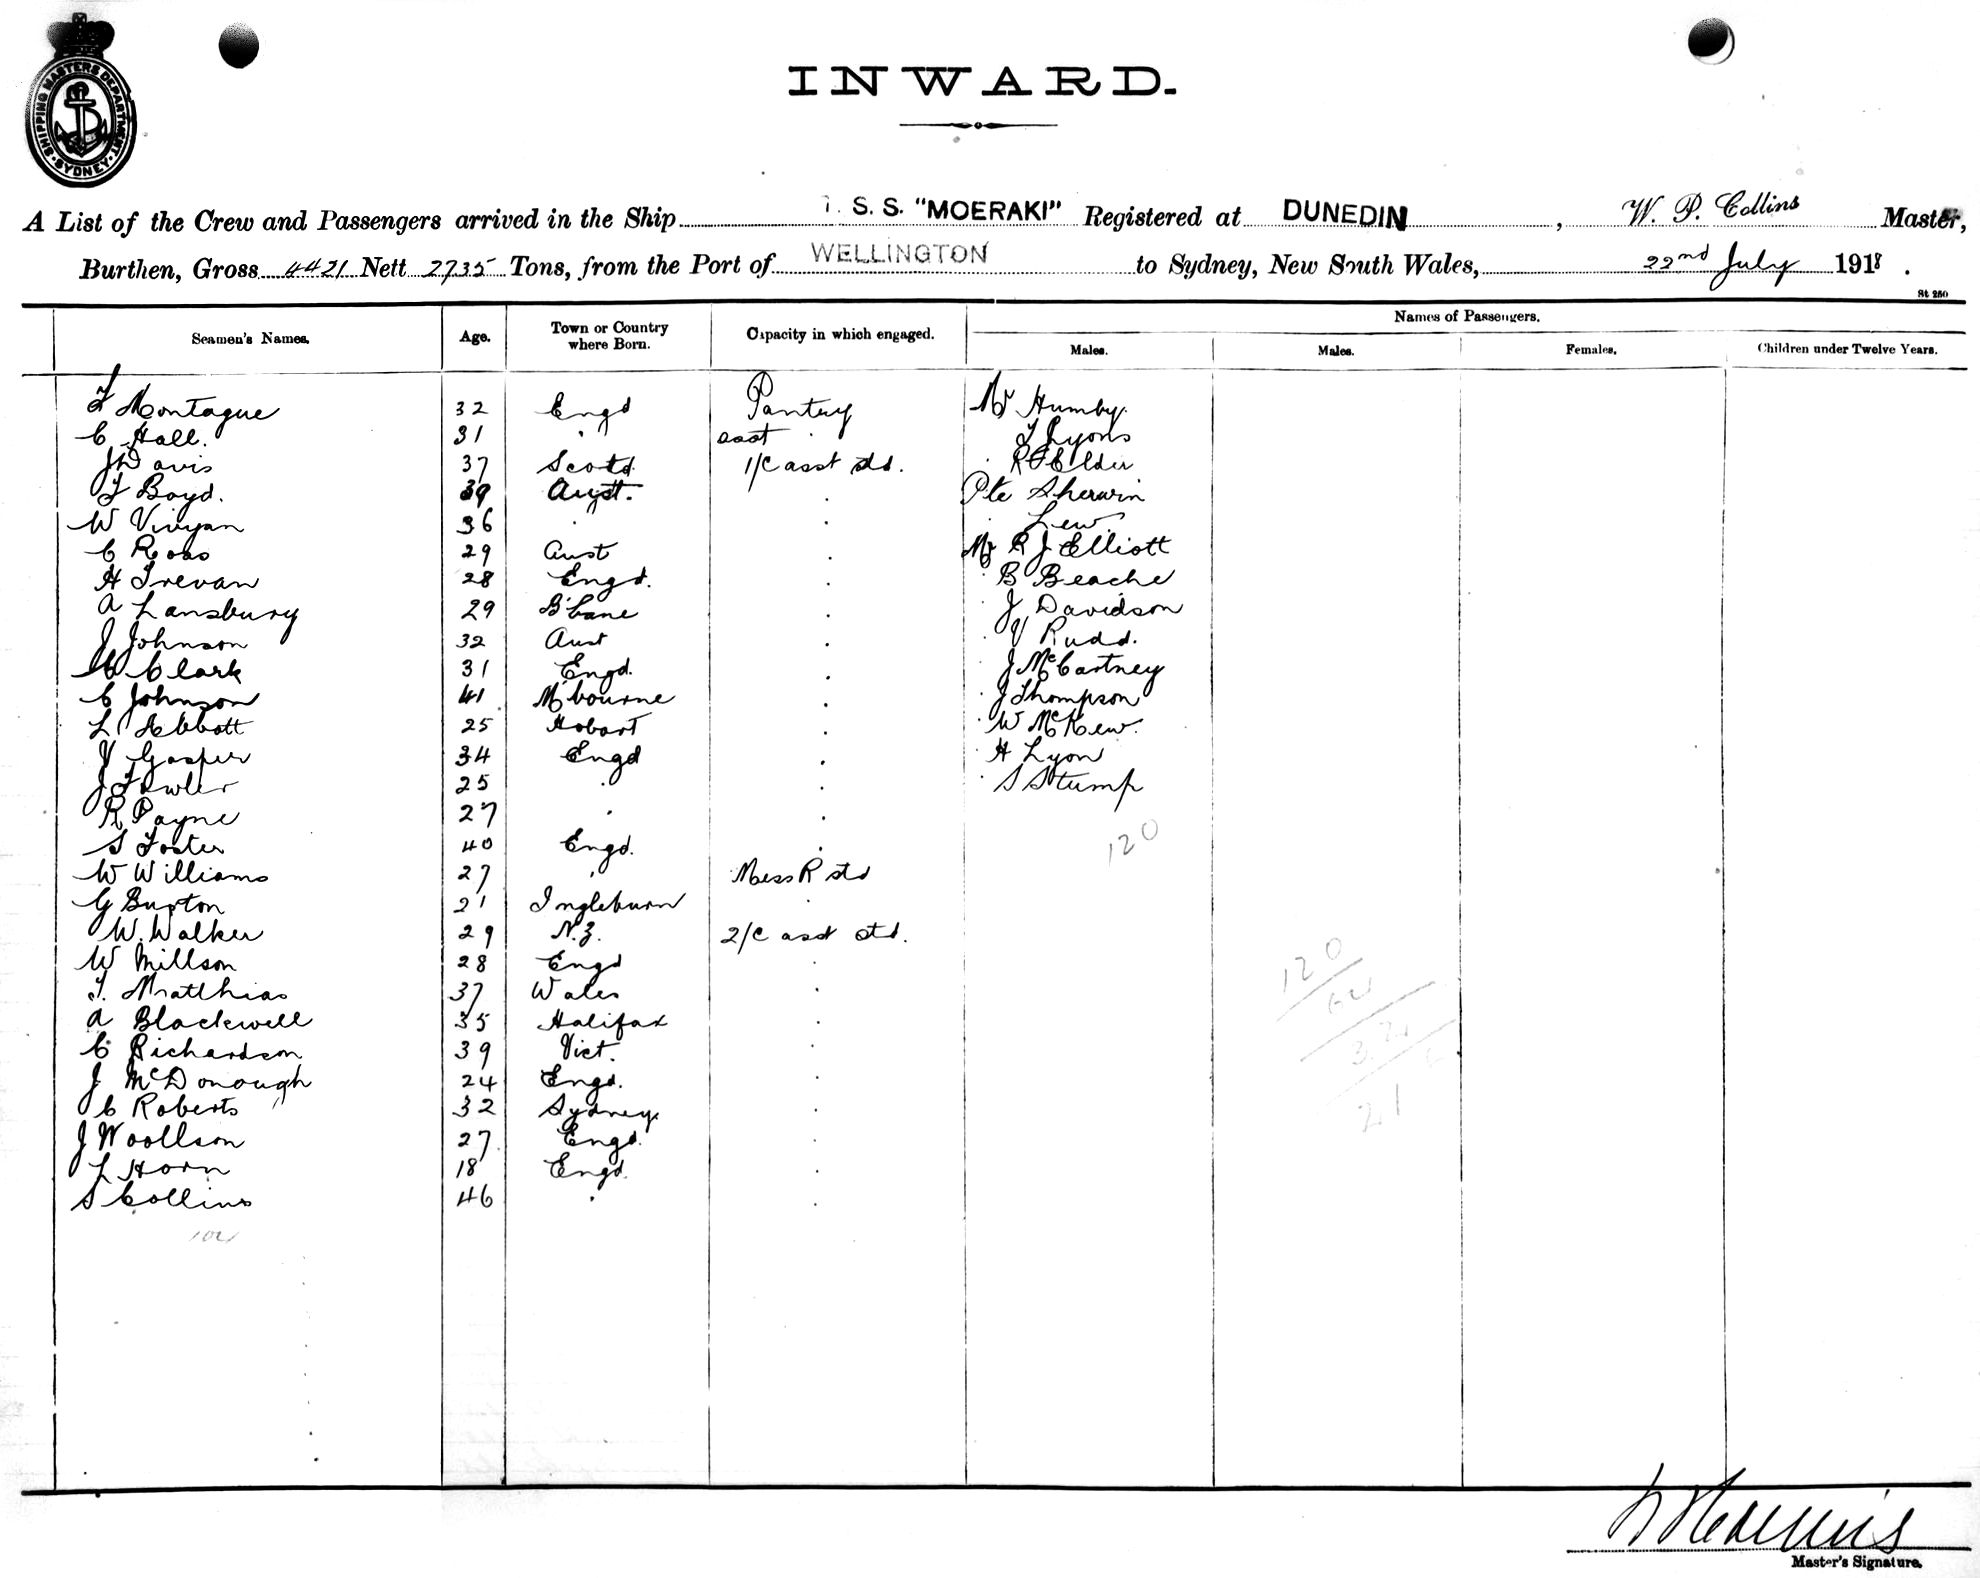 SHIPPING MASTERS DEPARTMENT
SYDNEY
INWARD.
A List of the Crew and Passengers arrived in the Ship T. S. S. "MOERAKI" Registered at DUNEDIN, W. P. Collins Master,
Burthen, Gross 4421 Nett 2735 Tons, from the Port of WELLINGTON to Sydney, New South Wales, 22nd July 1918.
St 250
Seamen's Names. Age. Town or Country where Born. Capacity in which engaged. Names of Passengers.
Males. Males. Females. Children under Twelve Years.
F Montague 32 Engd Pantry Mr Humby.
C Hall. 31 " asst " T Lyons
J Davis 37 Scotd 1/C asst std. " R F Elder
F Boyd. 39 Aust. " Pte Sherwin
W Vivyan 36 " " " Lew
C Ross 29 Aust " Mr R J Elliott
H Trevan 28 Engd. " " B Beache
A Lansbury 29 B'bane " " J Davidson
J Johnson 32 Aust " " V Rudd.
H Clark 31 Engd. " " J McCartney
C Johnson 41 M'bourne " " J Thompson
L Abbott 25 Hobart " " W McKew.
V Gasper 34 Engd " " H Lyon
J Fowler 25 " " " S Stump
R Payne 27 " "
S Foster 40 Engd. " 120
W Williams 27 " Mess R std
G Buxton 21 Ingleburn "
W. Walker 29 N.Z. 2/C asst std.
W Millson 28 Engd " 120
T. Matthias 37 Wales "
A Blackwell 35 Halifax "
C Richardson 39 Vict. "
J McDonough 24 Engd. "
C Roberts 32 Sydney. " 21
J Woollson 27 Engd. "
L Horn 18 Engd. "
S Collins 46 " "
Master's Signature.